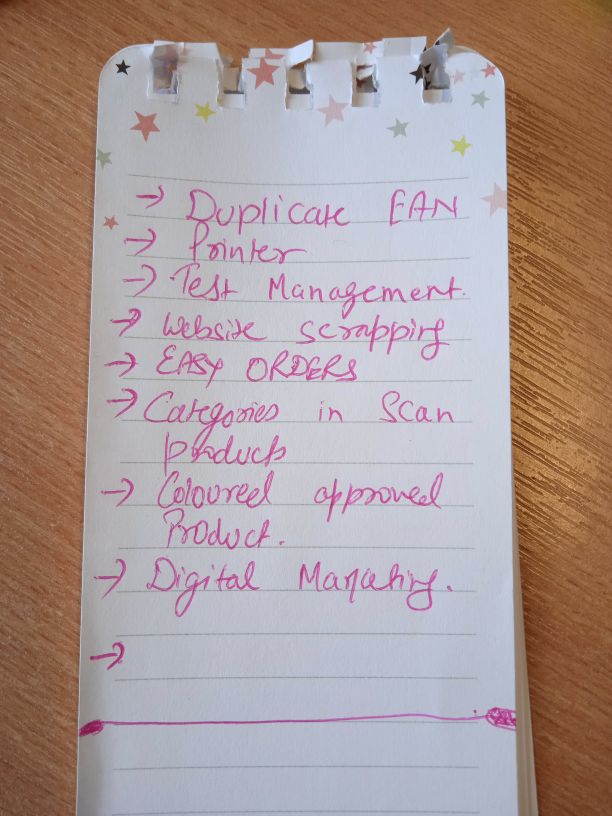 → Duplicate EAN
→ Printer
→ Test Management.
→ Website scrapping
→ EASY ORDERS
→ Categories in Scan
products
→ Coloured approved
Product.
→ Digital Marketing.
→